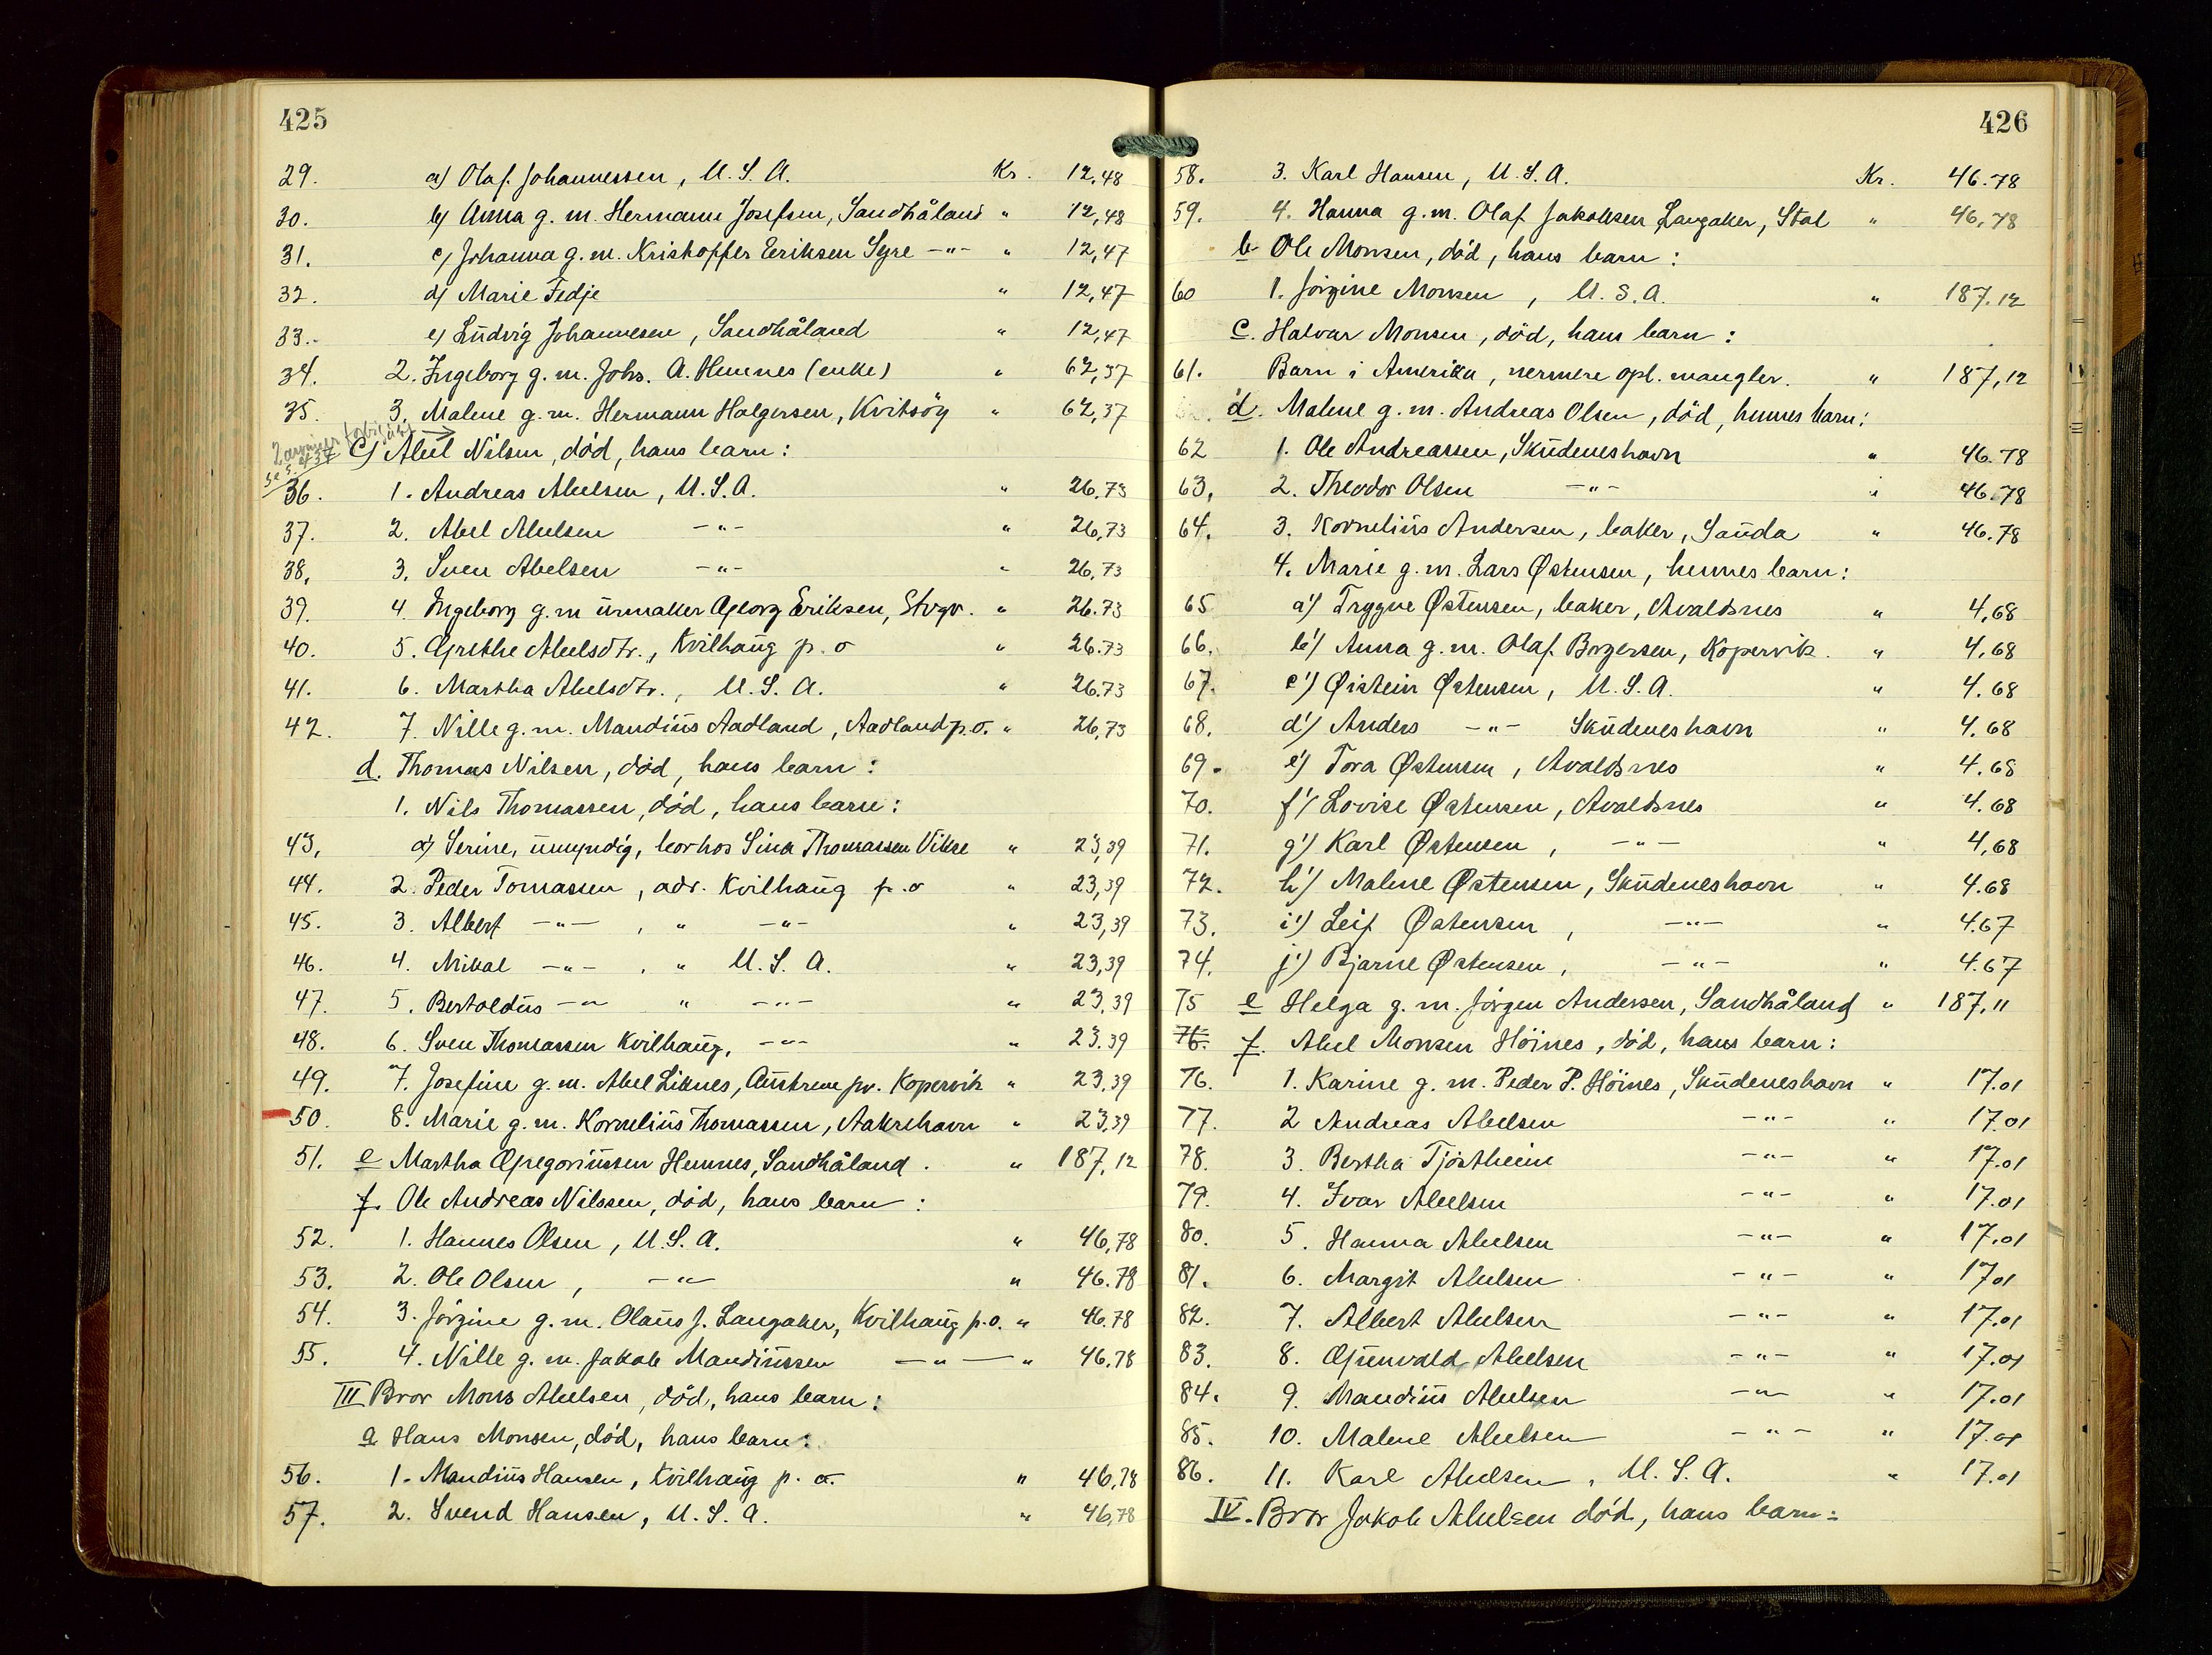 425
29. a) Olaf Johannessen, U.S.A. Kr. 12,48
30. b) Anna g. m. Hermann Josefsen, Sandhåland " 12,48
31. c) Johanna g. m. Kristoffer Eriksen Syre —"— " 12,47
32. d) Marie Fedje " 12,47
33. e) Ludvig Johannesen, Sandhåland " 12,47
34. 2. Ingeborg g. m. Johs. A. Hemnes (enke) " 62,37
35. 3. Malene g. m. Hermann Holgersen, Kvitsöy " 62,37
2 arvinger forbigått
se s. 437
c) Abel Nilsen, död, hans barn:
36. 1. Andreas Abelsen, U.S.A. " 26,73
37. 2. Abel Abelsen —"— " 26,73
38. 3. Sven Abelsen —"— " 26,73
39. 4. Ingeborg g. m urmaker Georg Eriksen, Stvgr. " 26.73
40. 5. Grethe Abelsdtr., Kvilhaug p. o " 26.73
41. 6. Martha Abelsdtr., U.S.A. " 26.73
42. 7. Nille g. m. Mandius Aadland, Aadland p.o. " 26,73
d. Thomas Nilsen, död, hans barn:
1. Nils Thomassen, död, hans barn:
43. a) Serine, umyndig, bor hos Sina Thomassen Vikse " 23,39
44. 2. Peder Tomassen, adr. Kvilhaug p.o " 23,39
45. 3. Albert —"— , " —"— " 23,39
46. 4. Mikal —"— , " U.S.A. " 23,39
47. 5. Bertoldus —"— " —"— " 23,39
48. 6. Sven Thomassen Kvilhaug, —"— " 23.39
49. 7. Josefine g. m. Abel Liknes, Austreim pr. Kopervik " 23,39
50. 8. Marie g. m. Kornelius Thomassen, Aakrehavn " 23,39
51. e Martha Gregoriussen Hemnes, Sandhåland. " 187,12
f. Ole Andreas Nilssen, död, hans barn:
52. 1. Hannes Olsen, U.S.A. " 46,78
53. 2. Ole Olsen, —"— " 46.78
54. 3. Jörgine g. m. Olaus J. Langaker, Kvilhaug p.o. " 46.78
55. 4. Nille g. m. Jakob Mandiussen —"— " 46.78
III Bror Mons Abelsen, död, hans barn:
a Hans Monsen, död, hans barn:
56. 1. Mandius Hansen, Kvilhaug p. o. " 46,78
57. 2. Svend Hansen, U.S.A. " 46,78
426
58. 3. Karl Hansen, U.S.A. Kr. 46.78
59. 4. Hanna g. m. Olaf Jakobsen Langaker, Stol " 46,78
b Ole Monsen, död, hans barn:
60 1. Jörgine Monsen, U.S.A. " 187.12
c. Halvar Monsen, död, hans barn:
61. Barn i Amerika, nermere opl. mangler. " 187,12
d. Malene g. m. Andreas Olsen, död, hennes barn:
62 1. Ole Andreassen, Skudeneshavn " 46.78
63, 2. Theodor Olsen —"— " 46.78
64. 3. Kornelius Andersen, baker, Sauda " 46.78
4. Marie g. m. Lars Østensen, hennes barn:
65 a') Trygve Østensen, baker, Avaldsnes " 4,68
66. b') Anna g. m. Olaf Borgersen, Kopervik. " 4,68
67. c') Øistein Østensen, U.S.A. " 4.68
68. d') Anders —"— Skudeneshavn " 4.68
69. e') Tora Østensen, Avaldsnes " 4.68
70. f') Lovise Østensen, Avaldsnes " 4.68
71. g') Karl Østensen, —"— " 4,68
72. h') Malene Østensen, Skudeneshavn " 4.68
73. i') Leif Østensen, —"— " 4.67
74. j') Bjarne Østensen, —"— " 4.67
75 e Helga g. m. Jörgen Andersen, Sandhåland " 187,11
76. f. Abel Monsen Höines, död, hans barn:
76. 1. Karine g. m. Peder P. Höines, Skudeneshavn " 17.01
77. 2 Andreas Abelsen —"— " 17.01
78. 3. Bertha Tjöstheim —"— " 17.01
79. 4. Ivar Abelsen —"— " 17.01
80. 5. Hanna Abelsen —"— " 17.01
81. 6. Margit Abelsen —"— " 17.01
82. 7. Albert Abelsen —"— " 17.01
83. 8. Gunvald Abelsen —"— " 17.01
84. 9. Mandius Abelsen —"— " 17.01
85. 10. Malene Abelsen —"— " 17.01
86. 11. Karl Abelsen, U.S.A. " 17.01
IV. Bror Jakob Abelsen död, hans barn: